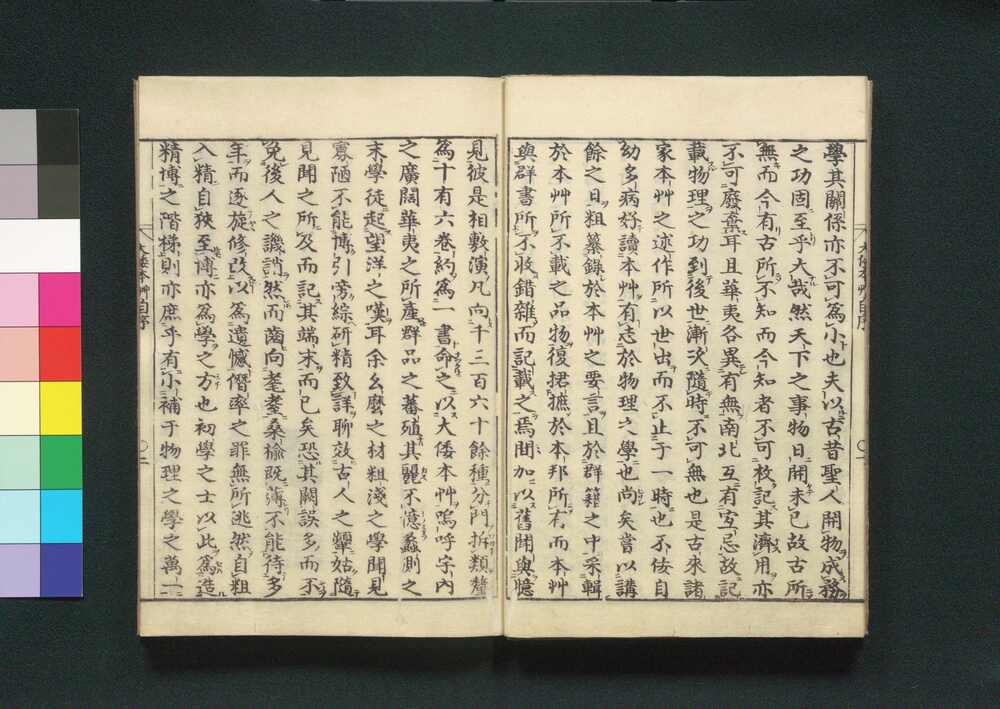 學其關係亦不可爲小也夫以古昔聖人開物成務
之功固至乎大哉然天下之事物日開未已故古所
無而今有古所不知而今知者不可枚記其濟用亦
不可廢棄耳且華夷各異有無南北互有宜忌故記
載物理之功到後世漸次隨時不可無也是古來諸
家本艸之述作所以世出而不止于一時也不佞自
幼多病好讀本艸有志於物理之學也尚矣嘗以講
餘之日粗纂錄於本艸之要言且於群籍之中采輯
於本艸所不載之品物復捃摭於本邦所有而本艸
與群書所不收錯雜而記載之焉間加以舊聞與憶
見彼是相敷演凡向千三百六十餘種分門拆類釐
爲十有六卷約爲一書命之以大倭本艸嗚呼宇內
之廣闊華夷之所產群品之蕃殖其麗不億蠡測之
末學徒起望洋之嘆耳余幺麼之材粗淺之學聞見
寡陋不能博引旁綜研精致詳聊效古人之顰姑隨
見聞之所及而記其端末而已矣恐其闕誤多而不
免後人之譏誚然而齒向耄耋桑楡既薄不能待多
年而逐旋修改以爲遺憾僭率之罪無所逃然自粗
入精自狹至博亦爲學之方也初學之士以此爲造
精博之階梯則亦庶乎有小補于物理之學之萬一
大倭本艸自序